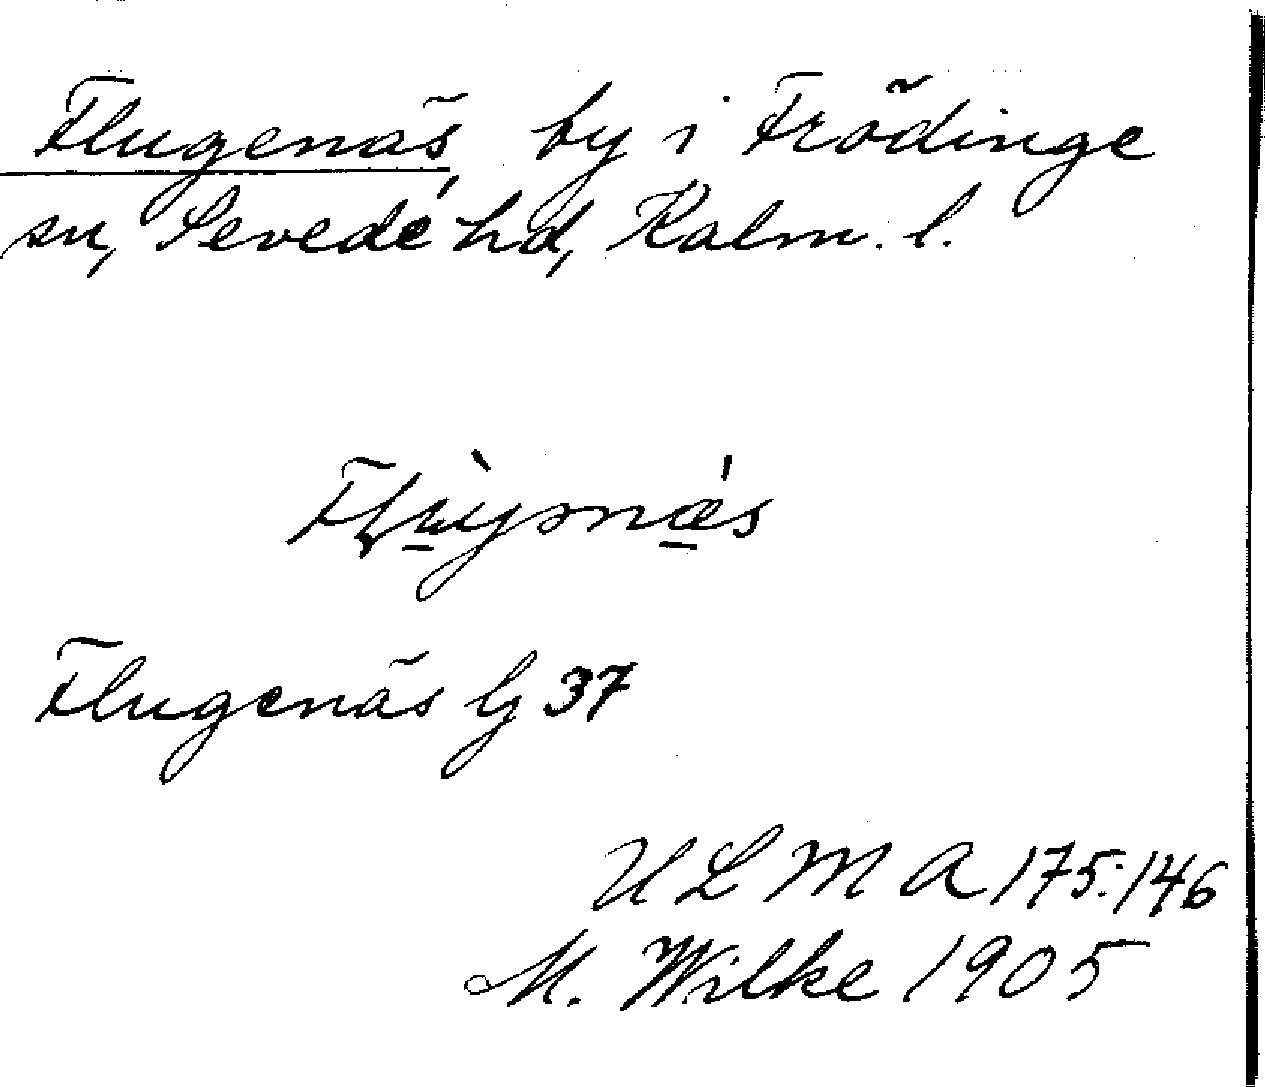 Flugenäs, by i Frödinge
sn, Sevede hd, Kalm. l.
Flugenäs lg 37
ULMA 175:146
M. Wilke 1905